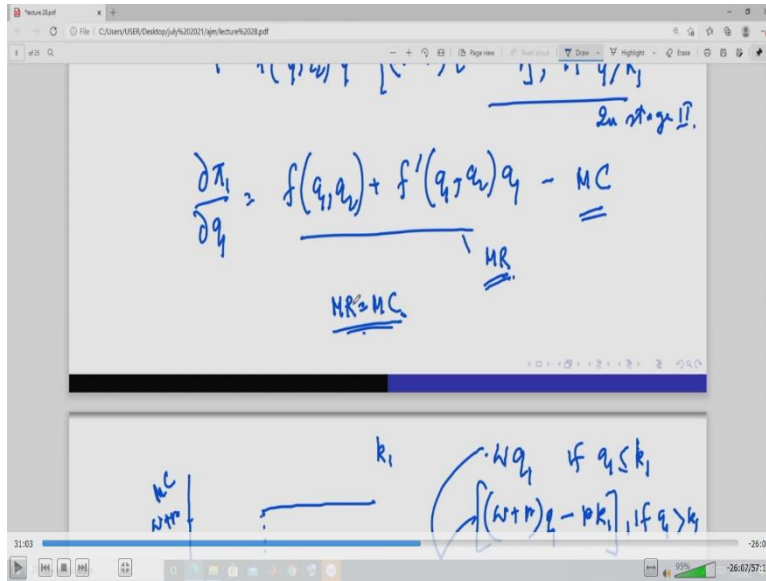 *lecture 28.pdf
File | C:/Users/USER/Desktop/july%202021/ajm/lecture%2028.pdf
8 of 25
Page view Read aloud Draw Highlight Erase
In stage II.
∂π₁/∂q₁ = f(q₁,q₂) + f'(q₁,q₂) q₁ - MC
MR
MR=MC.
k₁
MC
w+r
wq₁ if q₁ ≤ k₁
[(w+r)q - rk₁], if q₁ > k₁
31:03
95%
-26:07/57:1